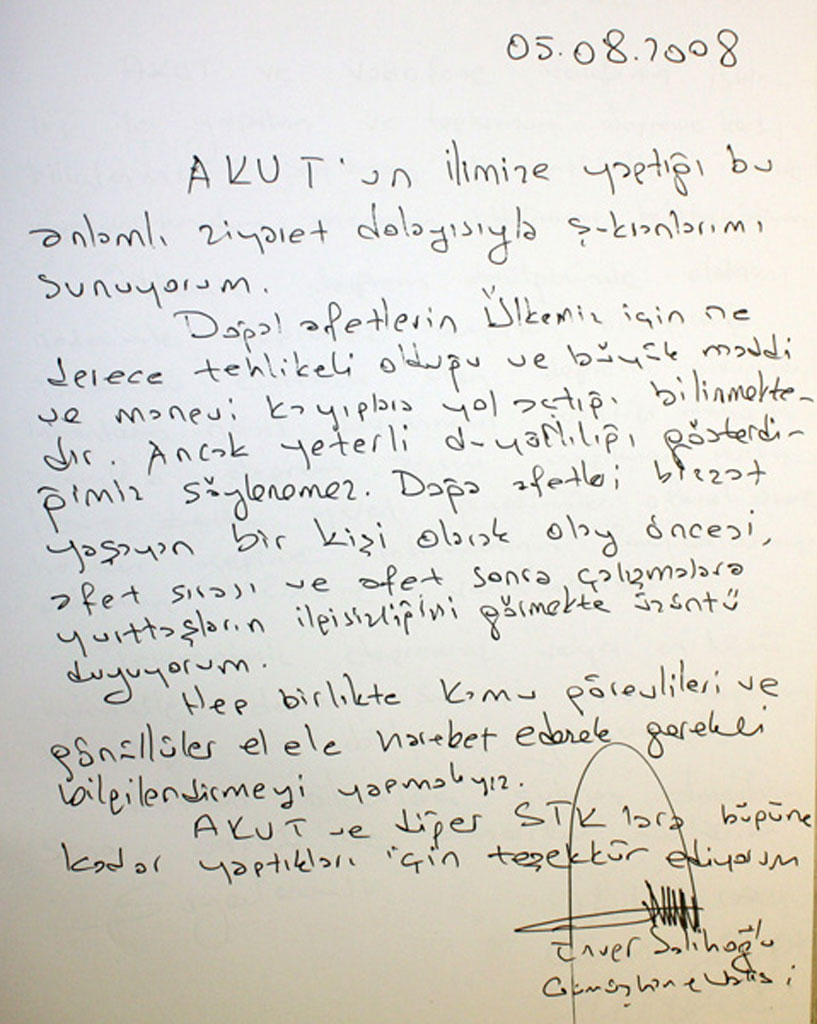 05.08.2008
AKUT'un ilimize yaptığı bu
anlamlı ziyaret dolayısıyla şükranlarımı
sunuyorum.
Doğal afetlerin Ülkemiz için ne
derece tehlikeli olduğu ve büyük maddi
ve manevi kayıplara yol açtığı bilinmekte-
dir. Ancak yeterli duyarlılığı gösterdi-
ğimiz söylenemez. Doğa afetleri bizzat
yaşayan bir kişi olarak olay öncesi,
afet sırası ve afet sonra çalışmalara
yurttaşların ilgisizliğini görmekte üzüntü
duyuyorum.
Hep birlikte kamu görevlileri ve
gönüllüler el ele hareket ederek gerekli
bilgilendirmeyi yapmalıyız.
AKUT ve diğer STK lara bugüne
kadar yaptıkları için teşekkür ediyorum
Enver Salihoğlu
Gümüşhane Valisi